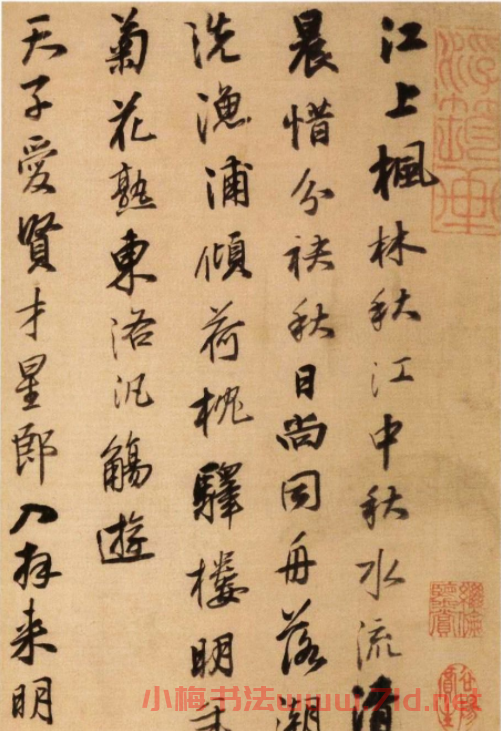 江上楓林秋江中秋水流清
晨惜分袂秋日尚同舟落潮
洗漁浦傾荷枕驛樓明年
菊花熟東洛汎觴遊
天子愛賢才星郎入拜來明
小梅书法www.7ld.net